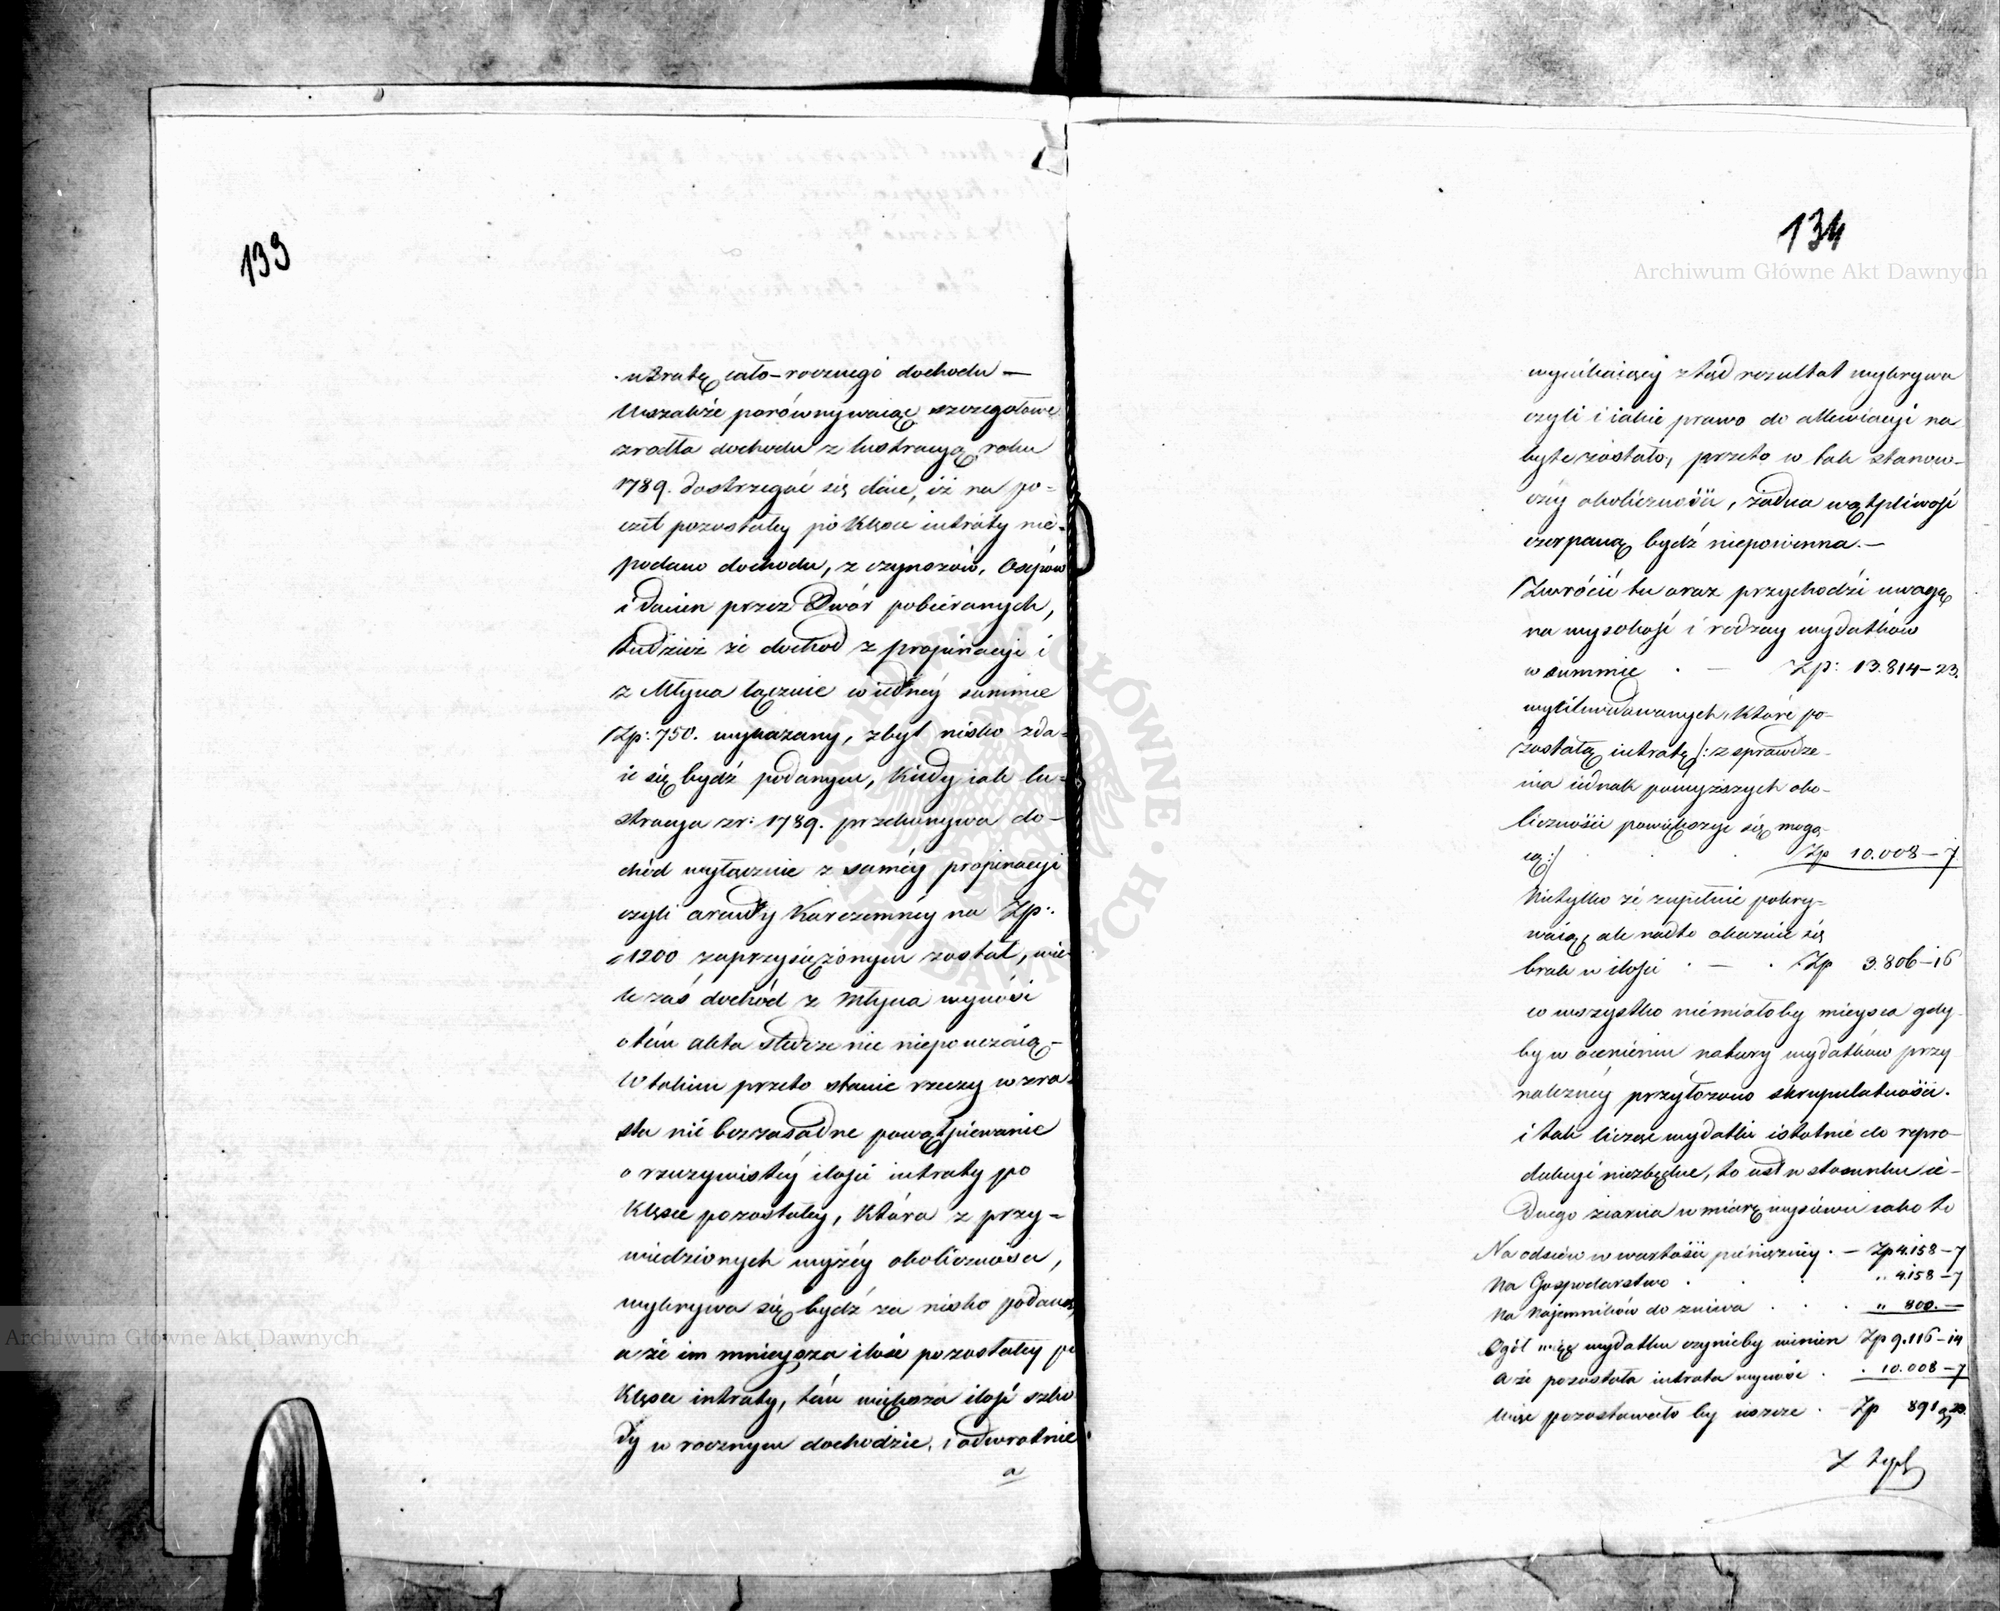 133
utratę cało-rocznego dochodu —
Wszakże porównywaiąc szczegołowe
zrodła dochodu z lustracyą roku
1789. dostrzegać się daie, iż na po-
czet pozostałey po Klęsce intraty nie-
podano dochodu, z czynszów, Osepów
i danin przez Dwór pobieranych,
tudzież że dochod z propinacyi i
z Młyna łącznie w iedney summie
Zp: 750. wykazany, zbyt nisko zda-
ie się bydź podanym, kiedy iak lu-
stracya z r: 1789. przekonywa do-
chód wyłącznie z saméy propinacyi
czyli arendy Karczemnéy na Zp:
1200 zaprzysiężonym został, wie-
le zaś dochód z Młyna wynosi
o tém akta śledcze nie niepouczaią —
W takim przeto stanie rzeczy wzra-
sta nie bezzasadne powątpiewanie
o rzeczywistéy ilości intraty po
Klęsce pozostałey, która z przy-
wiedzionych wyżéy okoliczności,
wykrywa się bydź za nisko podaną,
a że im mnieysza ilość pozostałey po
Klęsce intraty, tém większa ilość szko
dy w rocznym dochodzie, i odwrotnie
a
134
Archiwum Główne Akt Dawnych
wynikaiącéy ztąd rezultat wykrywa
czyli i iakie prawo do allewiacyi na
byte zostało, przeto w tak stanow-
czéy okoliczności, żadna wątpliwość
czerpaną bydź niepowinna. —
Zwrócić tu oraz przychodzi uwagę
na wysokość i rodzay wydatków
w summie . — Zp: 13.814–23.
wylikwidowanych, które po-
zostałą intratę /: z sprawdze-
nia iednak powyższych oko-
liczności powiększyć się mogą-
cą :/ . . Zp 10.008–7
Nietylko że zupełnie pokry-
waią, ale nadto okazuie się
brak w ilości . — . Zp 3.806–16
co wszystko niemiałoby mieysca gdy-
by w ocenieniu natury wydatków przy
należnéy przyłożono skrupulatności.
i tak licząc wydatki istotnie do repro-
dukcyi niezbędne, to iest w stosunku ie-
dnego ziarna w miarę wysiewu iako to
Na odsiew w wartości pieniężnéy . — Zp 4.158–7
Na Gospodarstwo . . „ 4.158–7
Na Najemników do żniwa . . . „ 800. —
Ogół więc wydatku czynićby winien Zp 9.116–14
A że pozostała intrata wynosi . . 10.008–7
Więc pozostawało by ieszcze . — Zp 891 gr 23.
Z tych
Archiwum Główne Akt Dawnych
ARCHIWUM GŁÓWNE AKT DAWNYCH